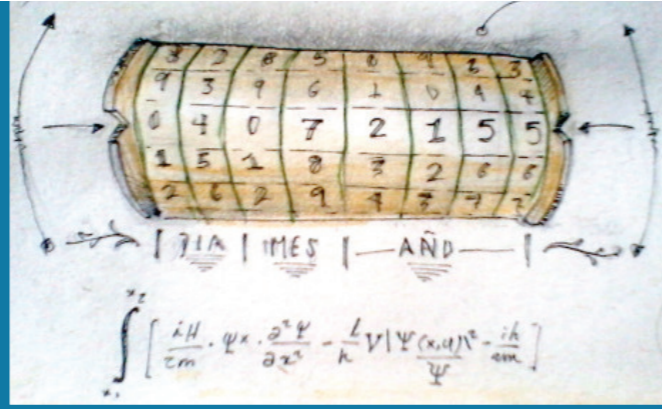 8 2 8 5 0 9 3 3
9 3 9 6 1 0 4 4
0 4 0 7 2 1 5 5
1 5 1 8 3 2 6 6
2 6 2 9 4 3 7 7
| DIA | MES | — AÑO — |
x₂
∫ [ iH/2m · Ψx · ∂²Ψ/∂x² - i/h V|Ψ(x,u)|²/Ψ - ih/2m ]
x₁